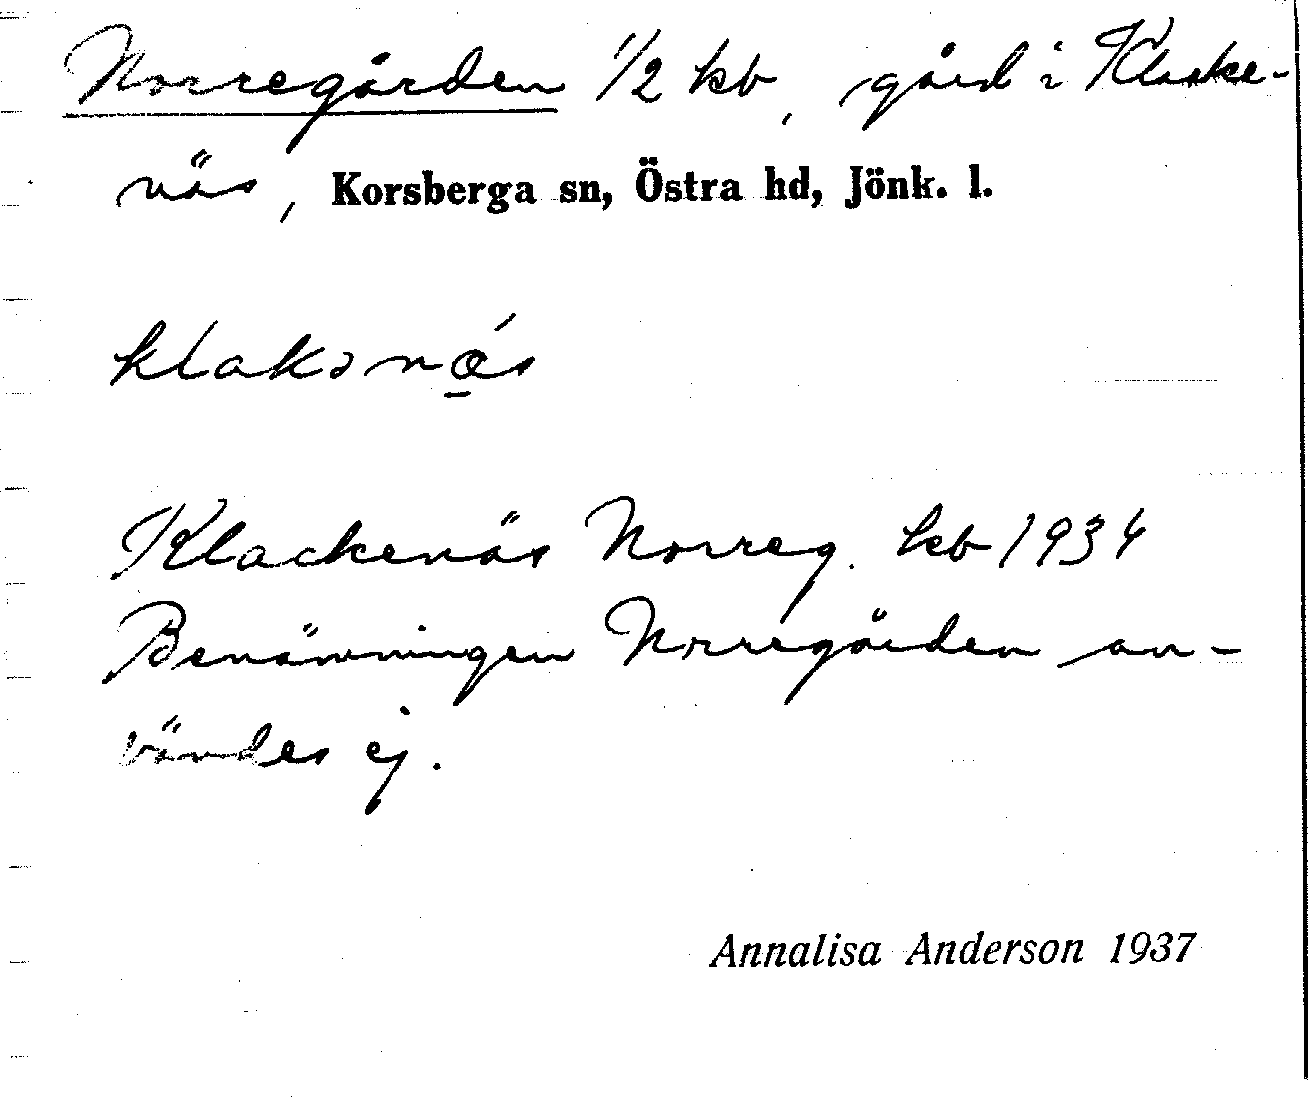 Norregården 1/2 kb, gård i Klacke-
näs, Korsberga sn, Östra hd, Jönk. l.
klakənǽ̠s
Klackenäs Norreg. kb 1934
Benämningen Norregården an-
vändes ej.
Annalisa Anderson 1937